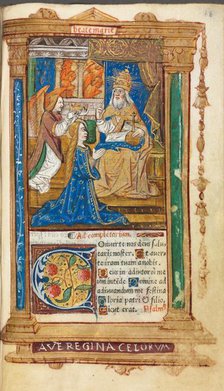 beate marie
Ad completorium.
Conuerte nos deus salu
taris noster. Et auer
te iram tuam a nobis
Deus in adiutoriũ me
um intẽde Domine ad
adiuuandum me festina
Gloria patri & filio
Sicut erat.
AVE REGINA CELORVM